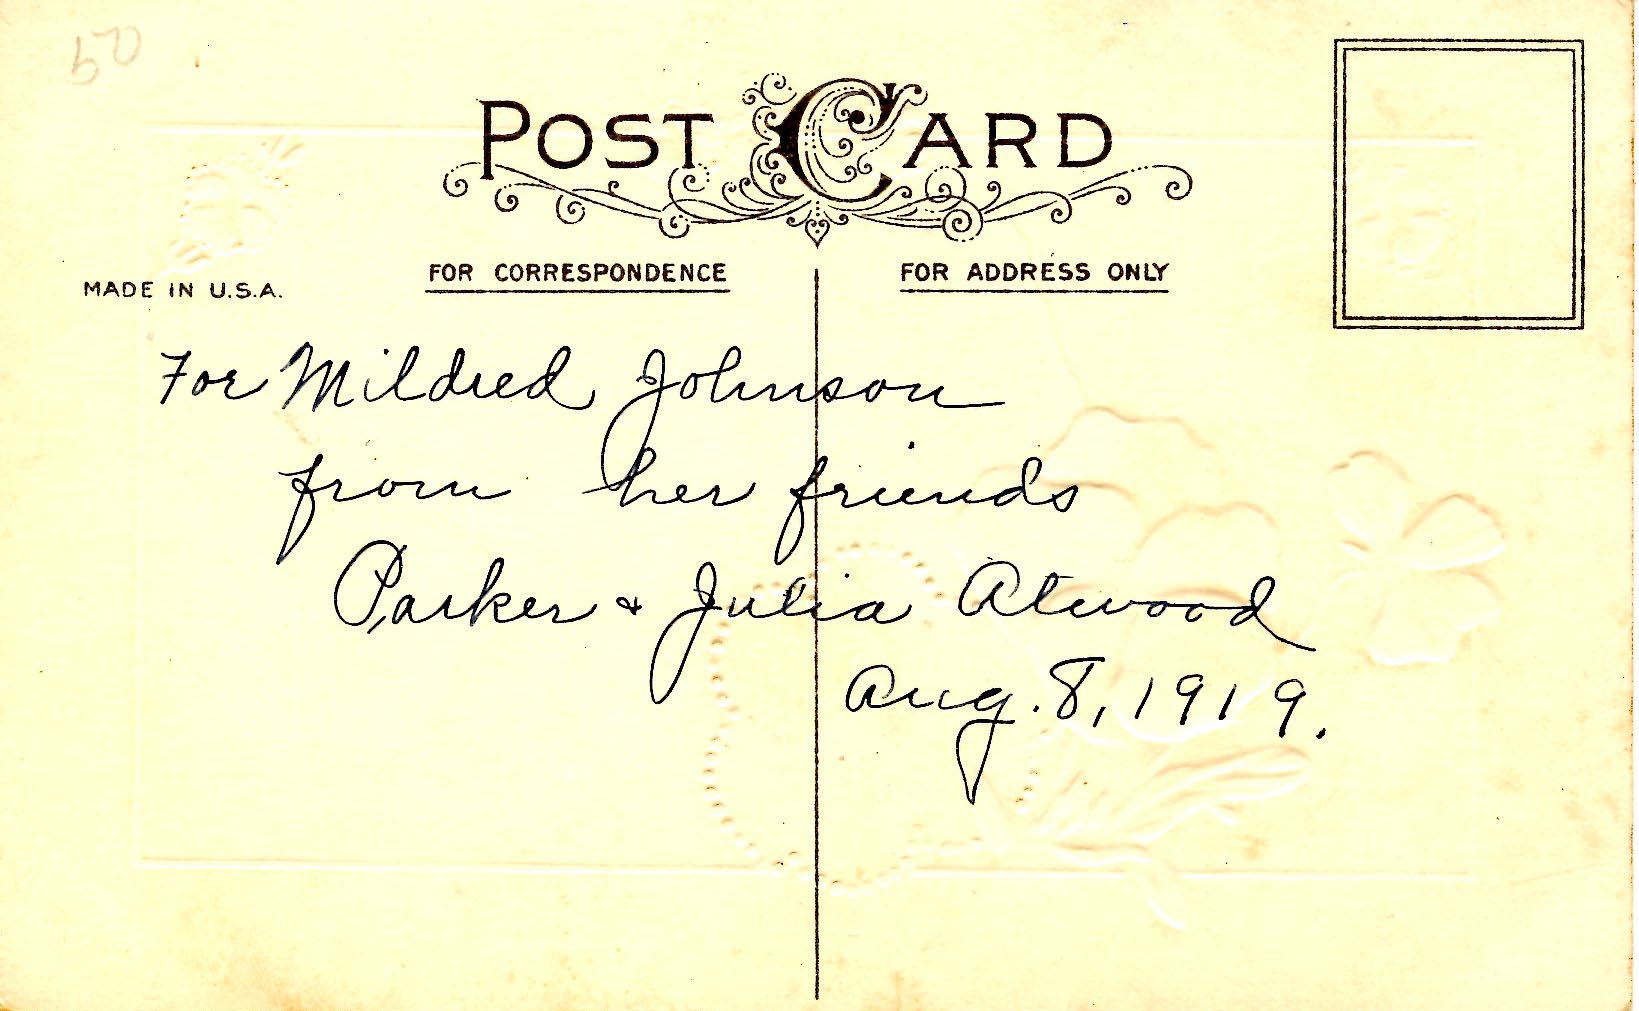 50
POST CARD
FOR CORRESPONDENCE
FOR ADDRESS ONLY
MADE IN U.S.A.
For Mildred Johnson
from her friends
Parker & Julia Atwood
Aug. 8, 1919.